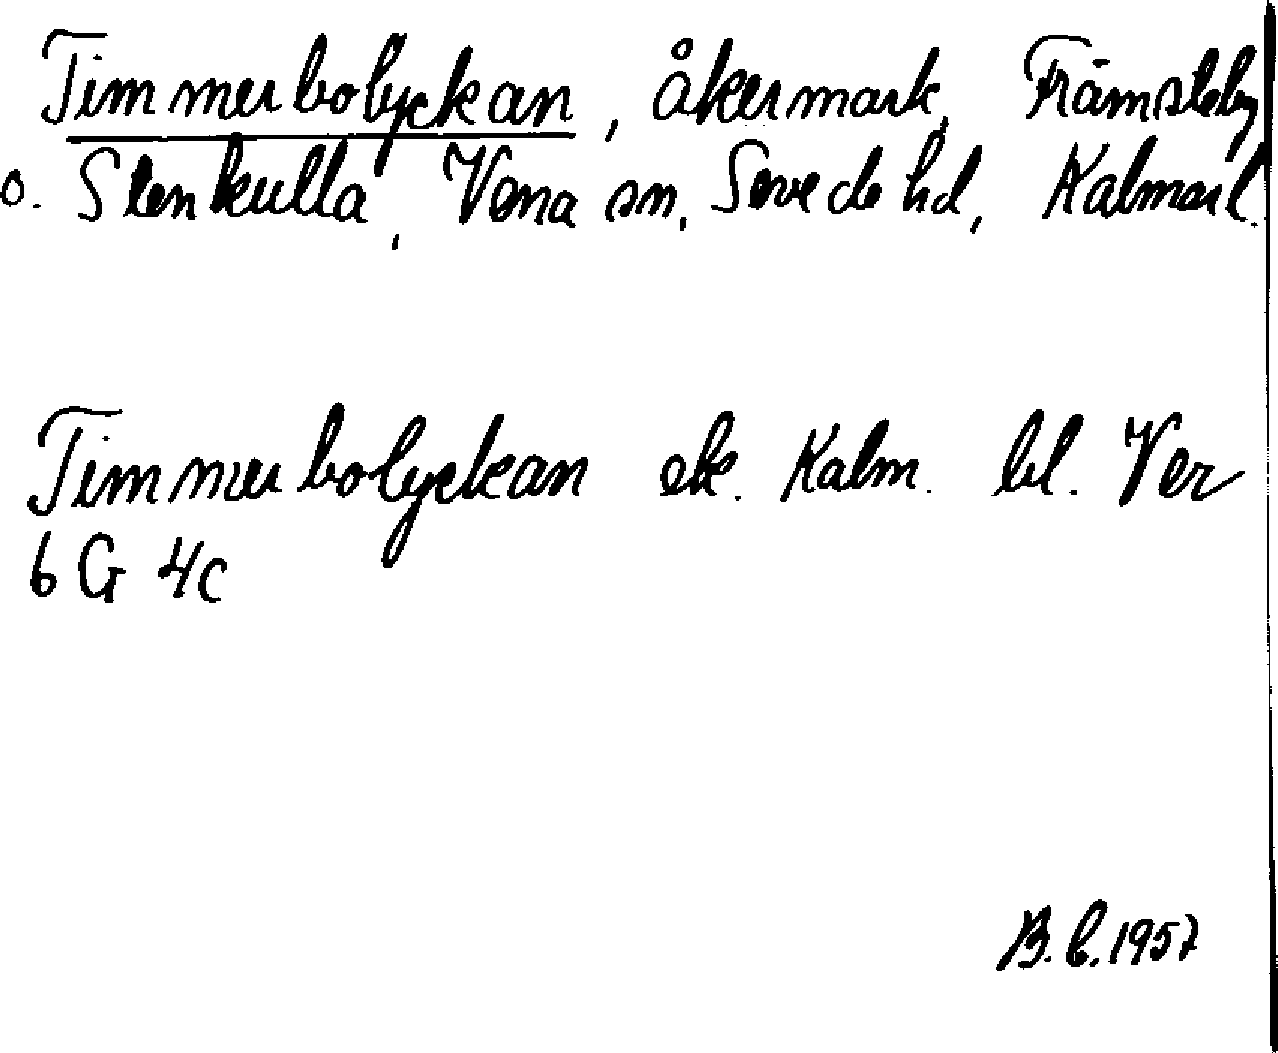 Timmerbolyckan, åkermark, Främsteby
o. Stenkulla, Vena sn, Sevede hd, Kalmar l.
Timmerbolyckan ek. Kalm. bl. Ver
6 G 4c
B.C. 1957